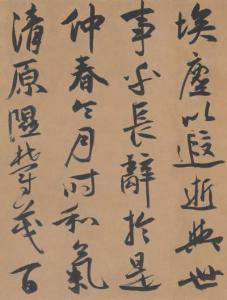 埃塵以遐逝與世
事乎長辭於是
仲春令月時和氣
清原隰鬱茂百